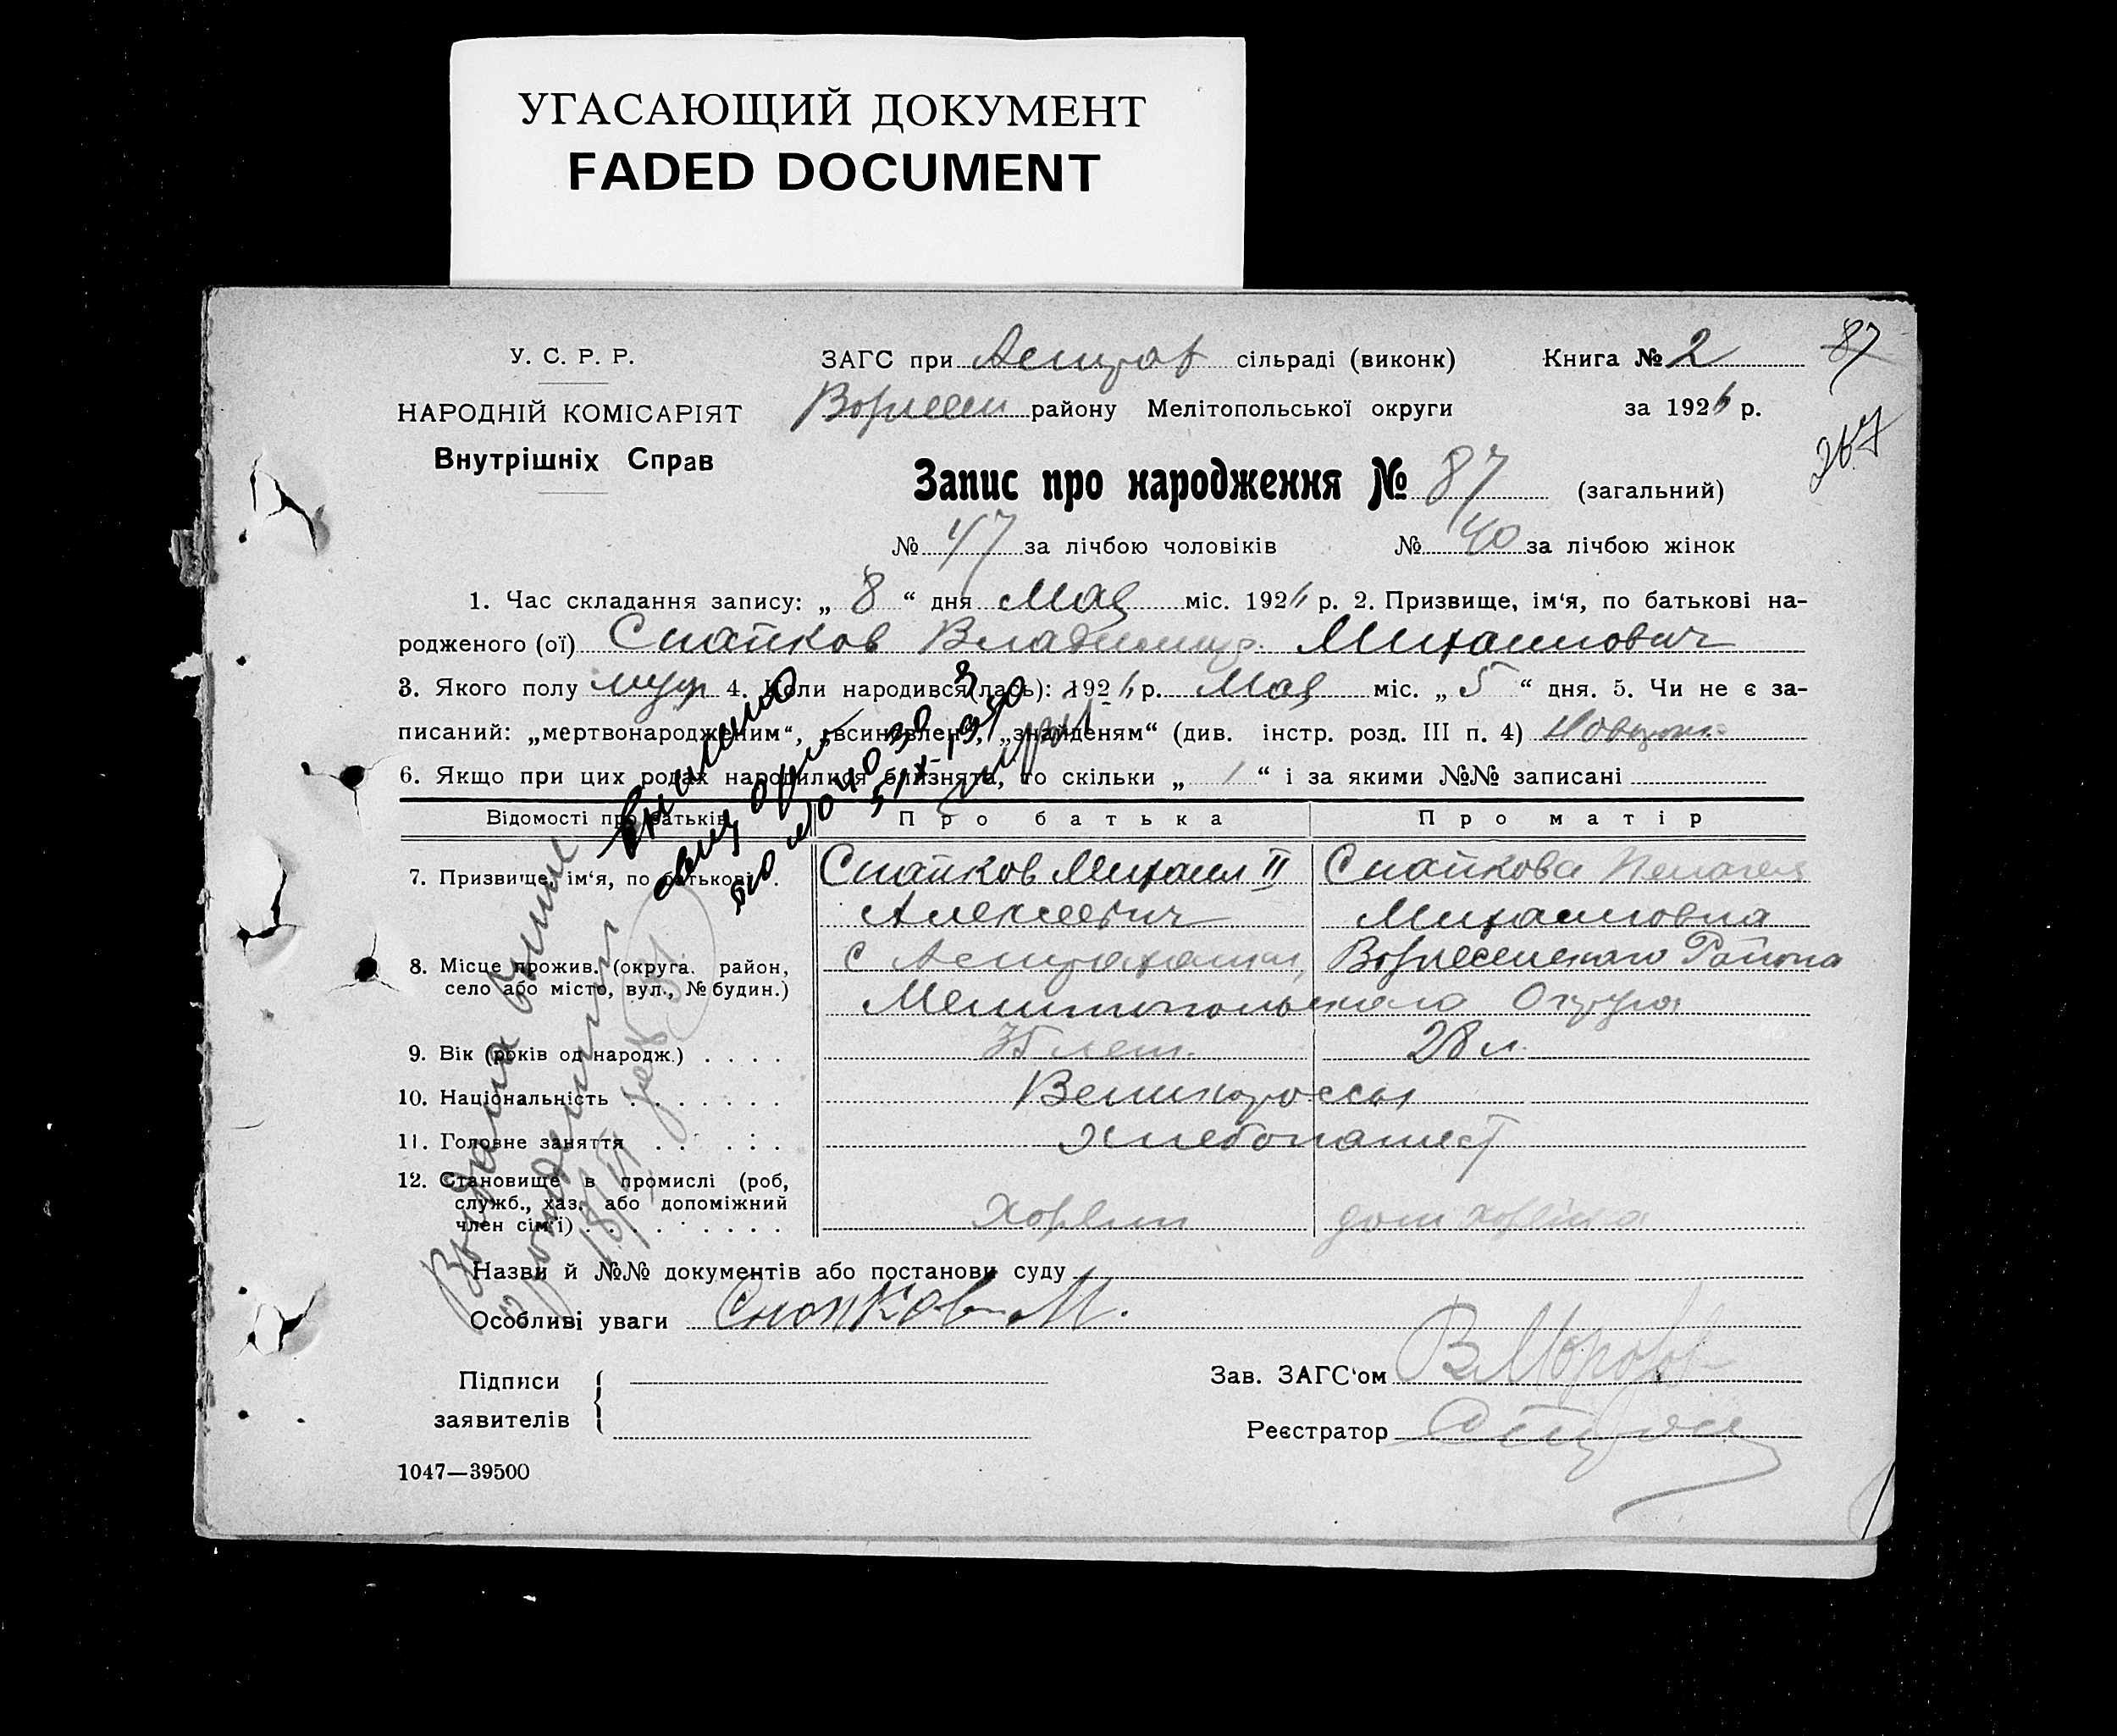 УГАСАЮЩИЙ ДОКУМЕНТ
FADED DOCUMENT
У. С. Р. Р.
НАРОДНІЙ КОМІСАРІЯТ
Внутрішніх Справ
ЗАГС при Астрах сільраді (виконк) Книга № 2
87
Вознесен району Мелітопольської округи за 1926 р.
267
Запис про народження № 87 (загальний)
№ 47 за лічбою чоловіків № 40 за лічбою жінок
1. Час складання запису: „ 8 “ дня Мая міс. 1926 р. 2. Призвище, ім‘я, по батькові на-
родженого (ої) Снапков Владимир Михаилович
3. Якого полу муж 4. Коли народився (лась): 1926 р. Мая міс. „ 5 “ дня. 5. Чи не є за-
писаний: „мертвонародженим“, „всиновлен“, „знайденям“ (див. інстр. розд. III п. 4)
6. Якщо при цих родах народилися близнята, то скільки „ 1 “ і за якими №№ записані
Відомості про батьків Про батька Про матір
7. Призвище, ім‘я, по батькові . Снапков Михаил II Снапкова Пелагея
Алексеевич Михаиловна
8. Місце прожив. (округа. район, село або місто, вул., № будин.) с Астраханка, Вознесенского Района
Мелитопольского Округа
9. Вік (років од народж.) . . . . 35 лет. 28 л.
10. Національність . . . . . . . Великороссы
11. Головне заняття . . . : . : Хлебопашест
12. Становище в промислі (роб, служб., хаз. або допоміжний член сім‘і) . . . . . . . . Хозяин дом хозяйка
Выдана выпис
о рождении
18/VI
Назви й №№ документів або постанови суду
Особливі уваги Снопков М.
Підписи
заявителів
Зав. ЗАГС‘ом В Морозов
Реєстратор
1047—39500